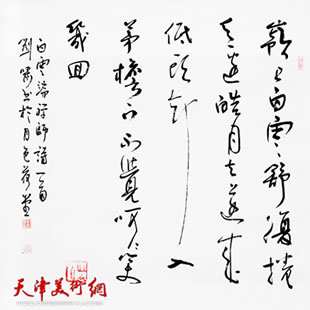 嶺上白雲舒復捲
天邊皓月去還來
低頭卻入
茅檐下不覺呵呵笑
幾回
白雲端禪師詩一首
劉 書於月色 堂
天津美術網